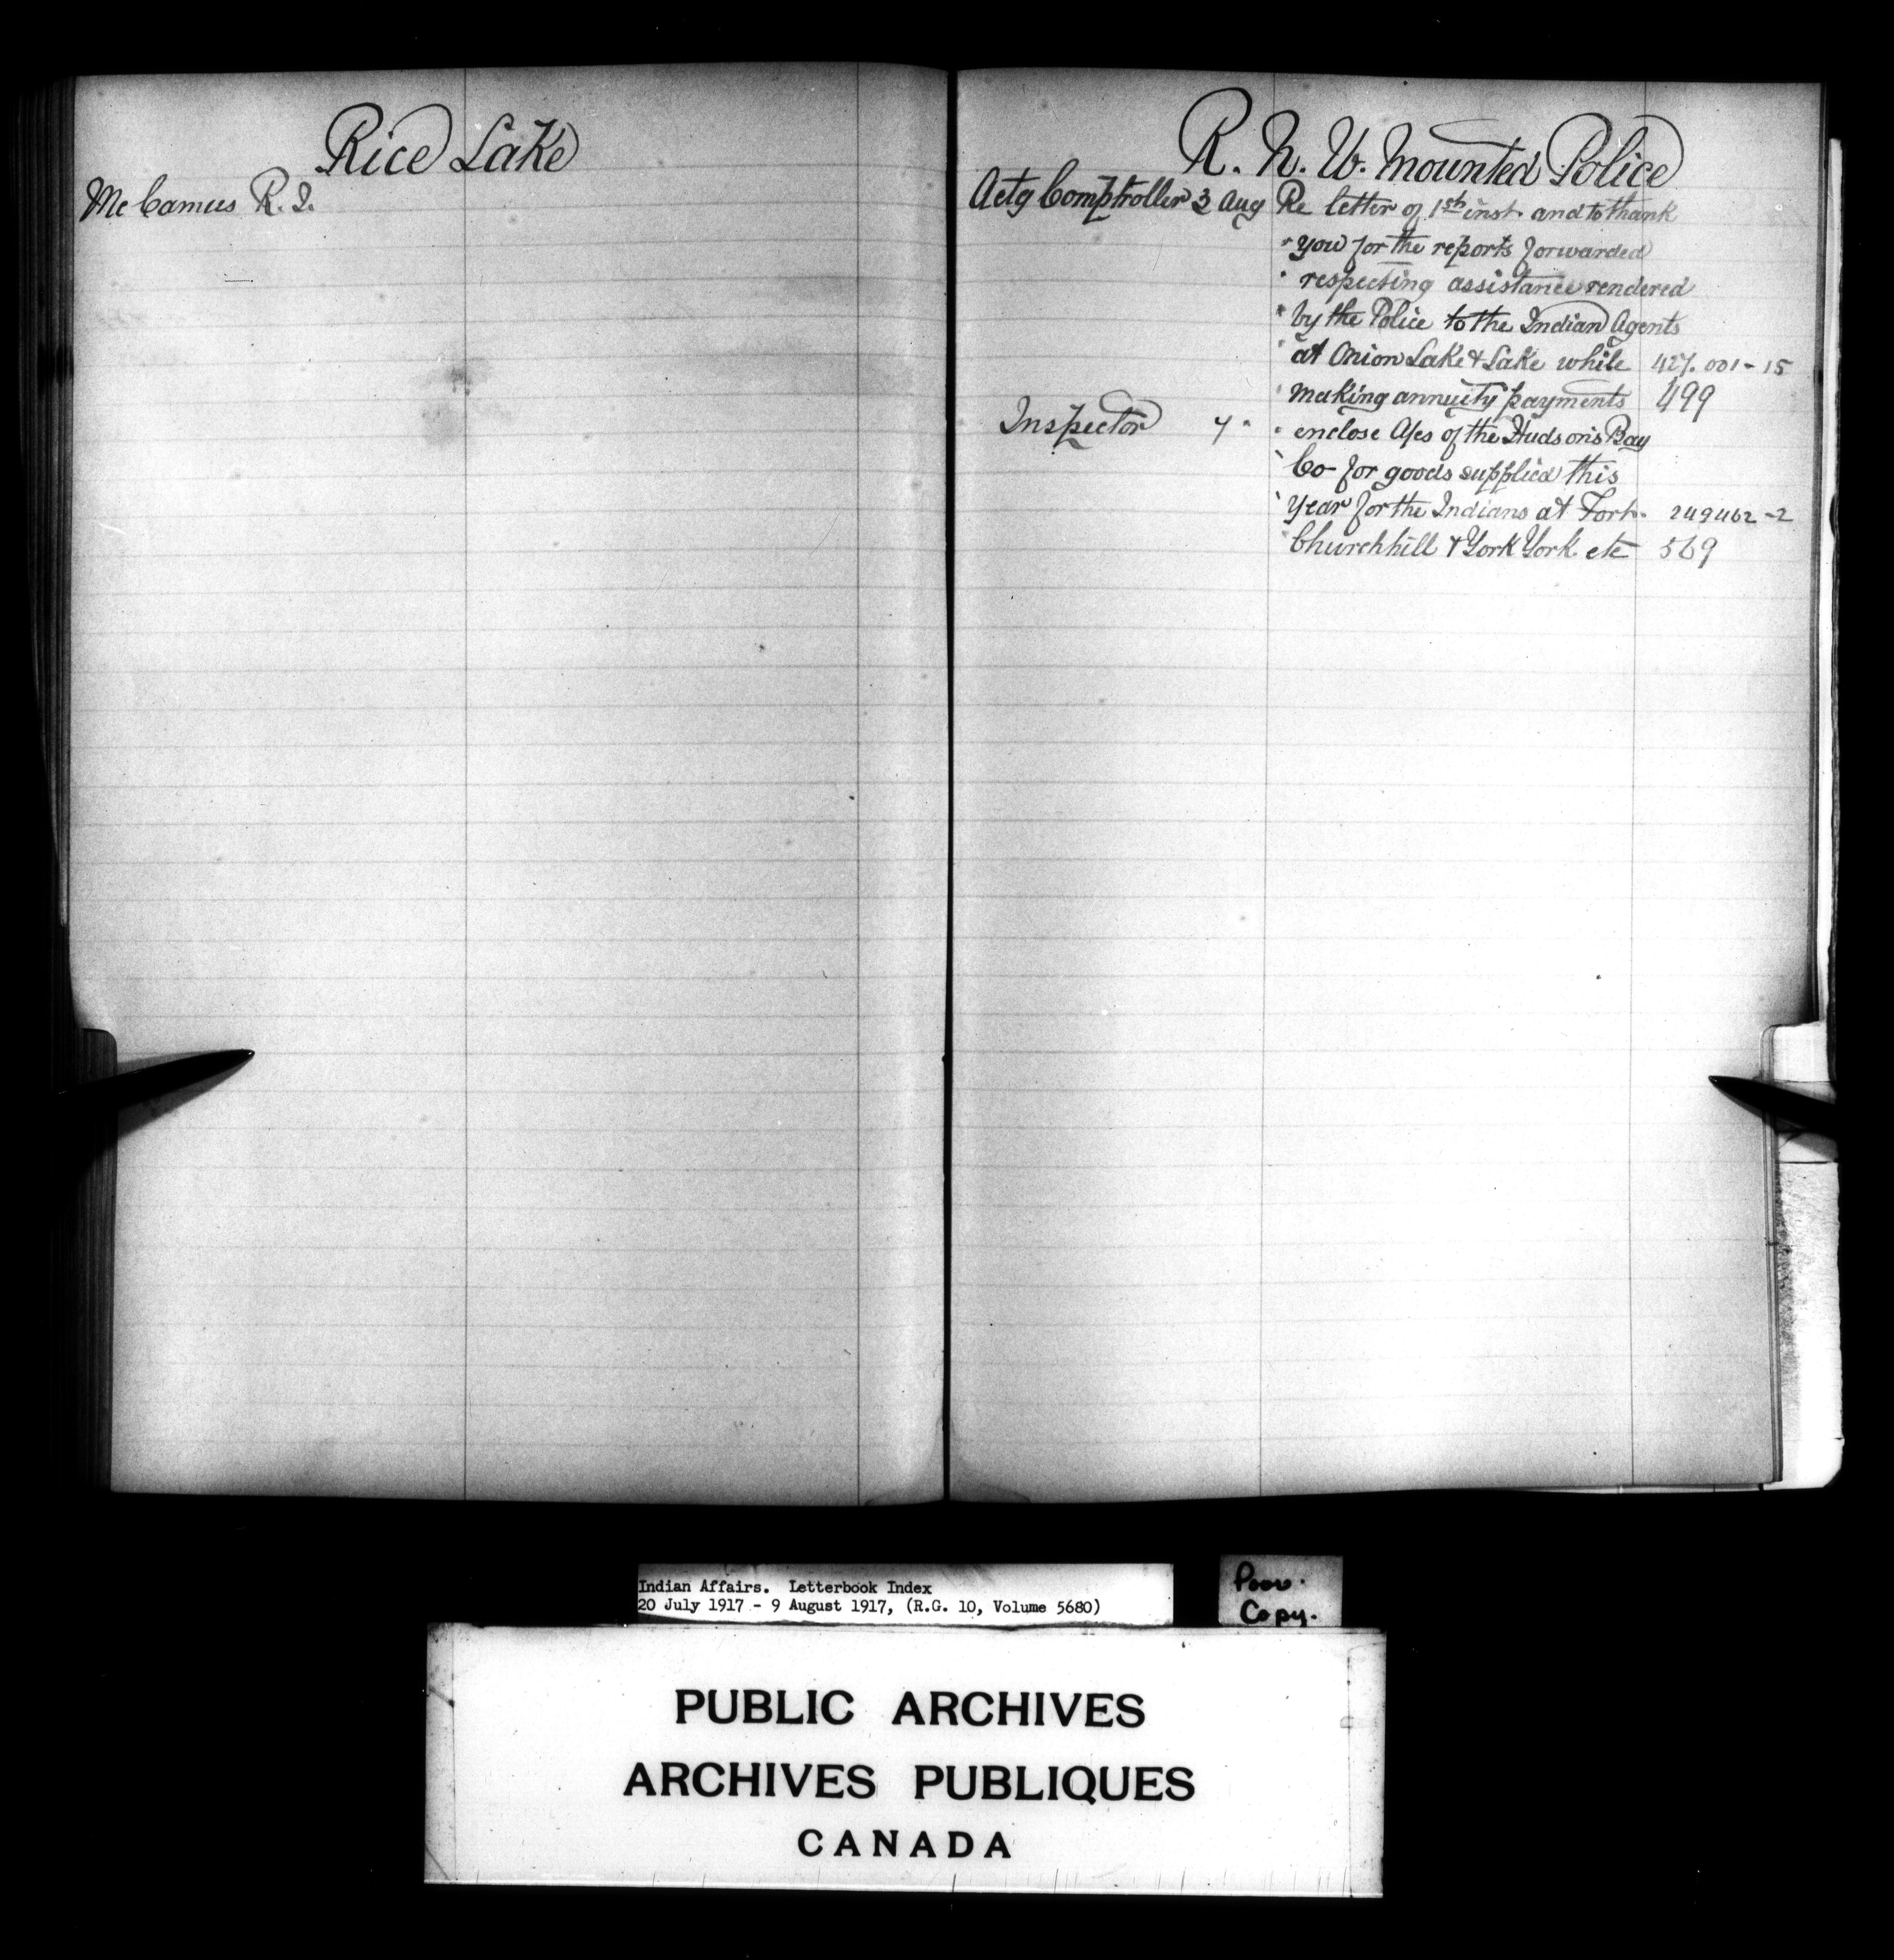 Rice Lake
McCamus R. J.
R. N. W. Mounted Police
Actg Comptroller 3 Aug Re letter of 1st inst. and to thank
" you for the reports forwarded
" respecting assistance rendered
" by the Police to the Indian Agents
" at Onion Lake & Lake while 427.001-15
" making annuity payments 499
Inspector 7 " " enclose A/cs of the Hudson's Bay
" Co for goods supplied this
" year for the Indians at Fort 249462-2
" Churchhill & York York etc 569
Indian Affairs. Letterbook Index
20 July 1917 - 9 August 1917, (R.G. 10, Volume 5680)
Poor.
Copy.
PUBLIC ARCHIVES
ARCHIVES PUBLIQUES
CANADA